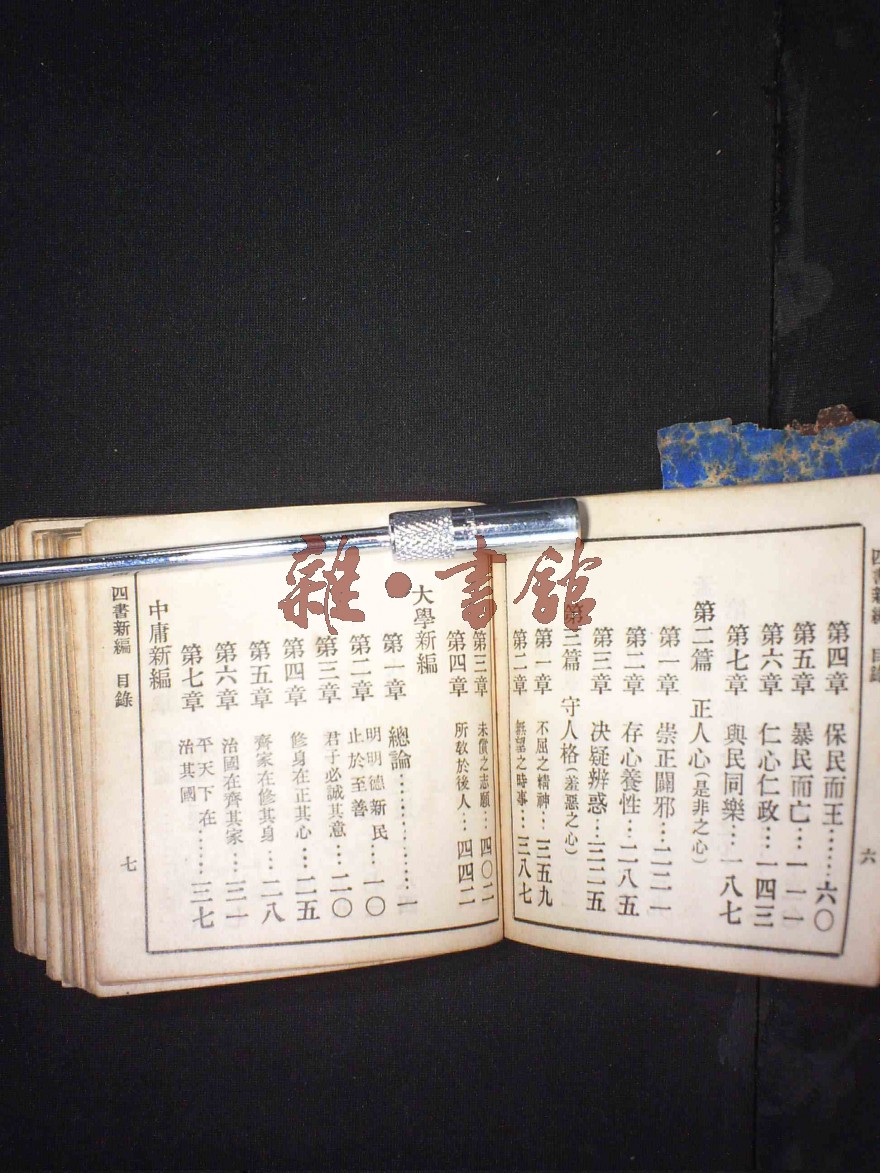 四書新編 目錄
六
第四章 保民而王……六〇
第五章 暴民而亡…一一一
第六章 仁心仁政…一四三
第七章 與民同樂…一八七
第二篇 正人心(是非之心)
第一章 崇正闢邪…二二一
第二章 存心養性…二八五
第三章 决疑辨惑…三二五
第三篇 守人格(羞惡之心)
第一章 不屈之精神…三五九
第二章 無望之時事…三八七
第三章 未償之志願…四〇二
第四章 所敎於後人…四四二
大學新編
第一章 總論……………一
第二章 明明德新民止於至善…一〇
第三章 君子必誠其意…二〇
第四章 修身在正其心…二五
第五章 齊家在修其身…二八
第六章 治國在齊其家…三一
第七章 平天下在治其國……三七
中庸新編
四書新編 目錄
七
雜·書館